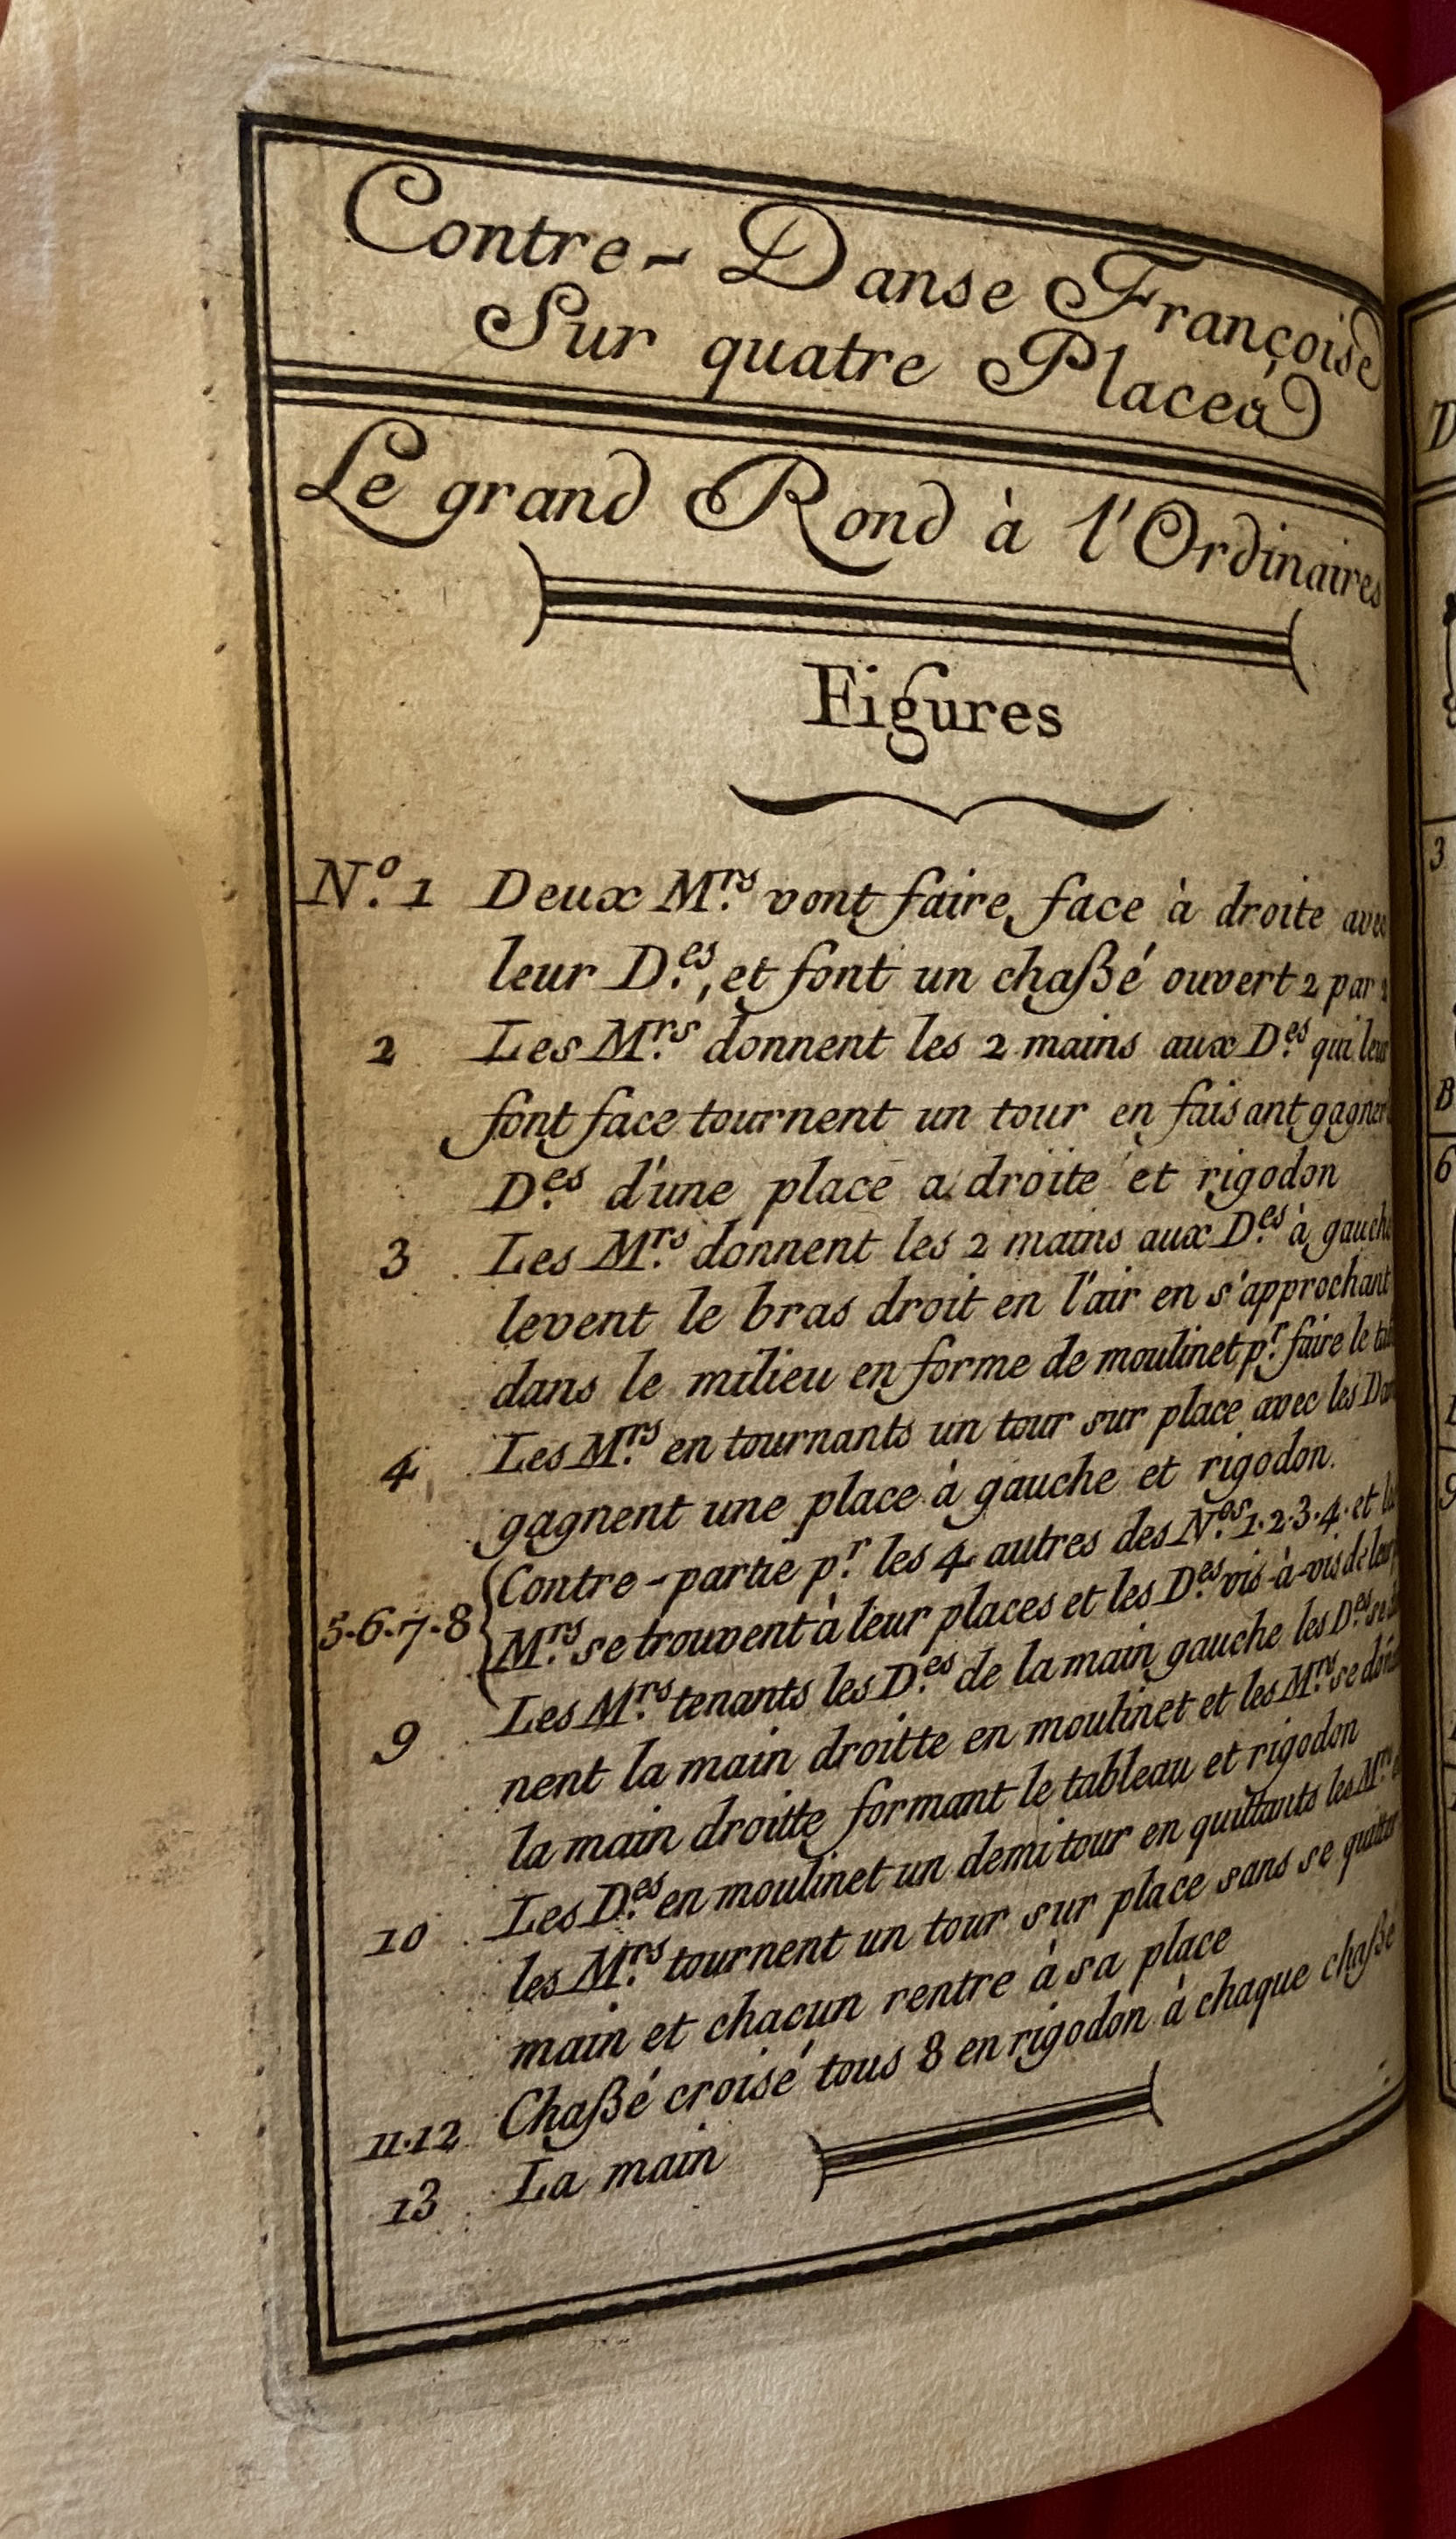 Contre-Danse Françoise
Sur quatre Places
Le grand Rond à l'Ordinaires
Figures
N.º 1 Deux M.rs vont faire face à droite avec
leur D.es, et font un chaßé ouvert 2 par 2
2 Les M.rs donnent les 2 mains aux D.es qui leur
font face tournent un tour en faisant gagner
D.es d'une place a droite et rigodon
3 Les M.rs donnent les 2 mains aux D.es à gauche
levent le bras droit en l'air en s'approchant
dans le milieu en forme de moulinet p.r faire le
4 Les M.rs en tournants un tour sur place avec les
gagnent une place à gauche et rigodon.
5.6.7.8 Contre-partie p.r les 4 autres des N.es 1.2.3.4. et
M.rs se trouvent à leur places et les D.es vis-à-vis de leur
9 Les M.rs tenants les D.es de la main gauche les D.es se
nent la main droitte en moulinet et les M.rs se
la main droitte formant le tableau et rigodon
10 Les D.es en moulinet un demi tour en quittants les M.rs
les M.rs tournent un tour sur place sans se quitter
main et chacun rentre à sa place
11.12 Chaßé croisé tous 8 en rigodon à chaque chaßé
13 La main
3
6
9